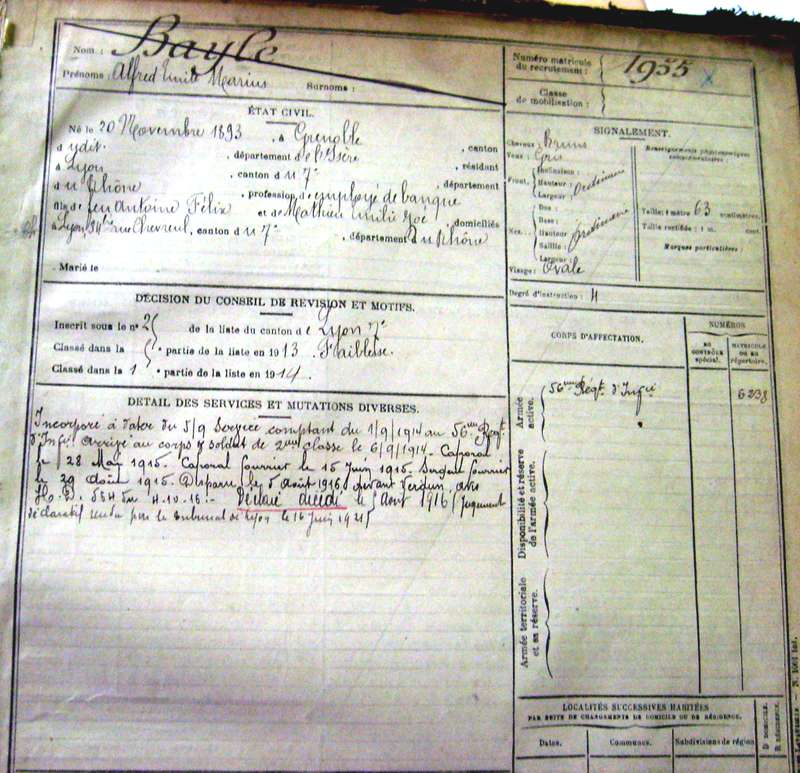 Nom : Bayle
Prénoms : Alfred Emile Marius Surnoms :
ÉTAT CIVIL.
Né le 20 Novembre 1893, à Grenoble, canton
d ydit, département de l'Isère, résidant
à Lyon, canton d u 7e, département
d u Rhône, profession d'employé de banque
fils de feu Antoine Félix et de Mathieu Emilie Zoé, domiciliés
à Lyon, rue Chevreul, canton d u 7e, département d u Rhône
Marié le
DÉCISION DU CONSEIL DE REVISION ET MOTIFS.
Inscrit sous le n° de la liste du canton d e Lyon 7e
Classé dans la 5e partie de la liste en 1913 Faiblesse.
Classé dans la 1e partie de la liste en 1914.
DÉTAIL DES SERVICES ET MUTATIONS DIVERSES.
Incorporé à dater du 5/9 Service comptant du 1/9/1914 au 56ème Régt
d'Infie arrivé au corps & soldat de 2ème classe le 6/9/1914. Caporal
le 28 Mai 1915. Caporal fourrier le 15 Juin 1915. Sergent fourrier
le 29 Août 1915. Disparu le 5 août 1916 devant Verdun, avis
Déclaré décédé le 5 août 1916 (jugement
déclaratif rendu par le tribunal de Lyon le 16 juin 1921)
Numéro matricule
du recrutement : 1955
Classe
de mobilisation :
SIGNALEMENT.
Cheveux : bruns
Yeux : Gris
Front. Inclinaison :
Hauteur : ordinaire
Largeur :
Nez. Dos :
Base :
Hauteur : ordinaire
Saillie :
Largeur :
Visage : Ovale
Renseignements physionomiques
complémentaires :
Taille : 1 mètre 63 centimètres.
Taille rectifiée : 1 m. cent.
Marques particulières :
Degré d'instruction : 4
CORPS D'AFFECTATION.
NUMÉROS
AU
CONTRÔLE
spécial.
MATRICULE
OU AU
répertoire.
Armée
active.
56ème Régt d'Infie
6238
Disponibilité et réserve
de l'armée active.
Armée territoriale
et sa réserve.
LOCALITÉS SUCCESSIVES HABITÉES
PAR SUITE DE CHANGEMENTS DE DOMICILE OU DE RÉSIDENCE.
Dates.
Communes.
Subdivisions de région
D. DOMICILE.
R. RÉSIDENCE.